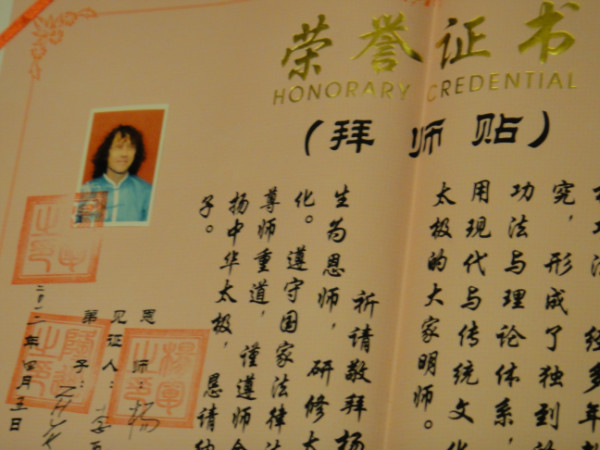 荣誉证书
HONORARY CREDENTIAL
（拜师贴）
经多年
究，形成了独到
功法与理论体系，
用现代与传统文化
太极的大家明师。
祈请敬拜杨
生为恩师，研修太
化。遵守国家法律法
尊师重道，谨遵师命
扬中华太极，恩请纳
子。
恩师：杨
见证人：李
弟子：
年四月五日